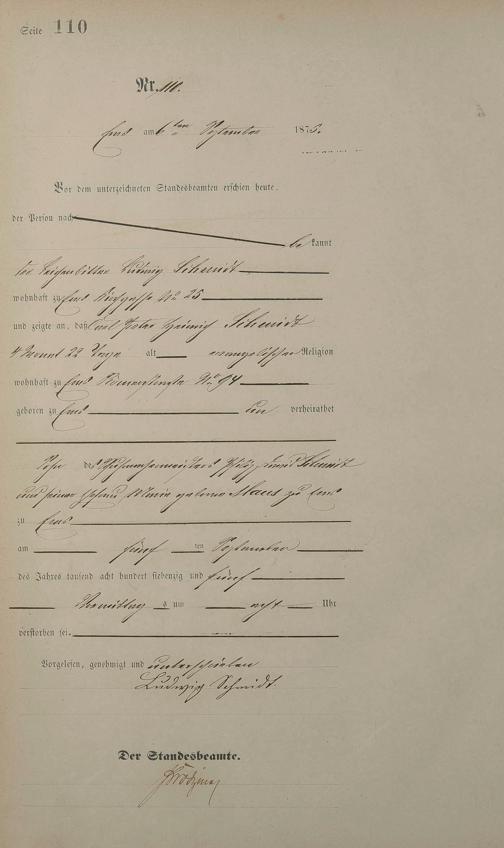 Seite 110
Nr. 110.
Ems am 6ten September 1875.
Vor dem unterzeichneten Standesbeamten erschien heute,
der Person nach
be kannt
der Leichenbitter Ludwig Schmidt
wohnhaft zu Ems No 25
und zeigte an, daß Carl Peter Heinrich Schmidt
4 Monat 22 Tage alt evangelischer Religion
wohnhaft zu Ems No 94
geboren zu Ems un verheirathet
Sohn des Schmidt
und seiner Ehefrau geborne zu Ems
zu Ems
am fünf ten September
des Jahres tausend acht hundert siebenzig und fünf
Vormittag s um acht Uhr
verstorben sei.
Vorgelesen, genehmigt und unterschrieben
Ludwig Schmidt.
Der Standesbeamte.